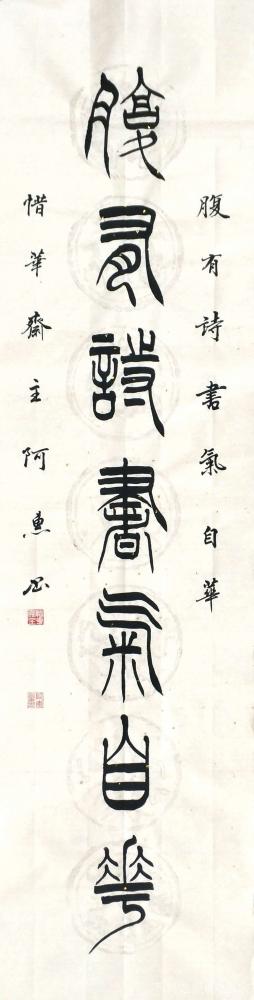 腹有詩書氣自華
腹有詩書氣自華
惜華齋主阿惠